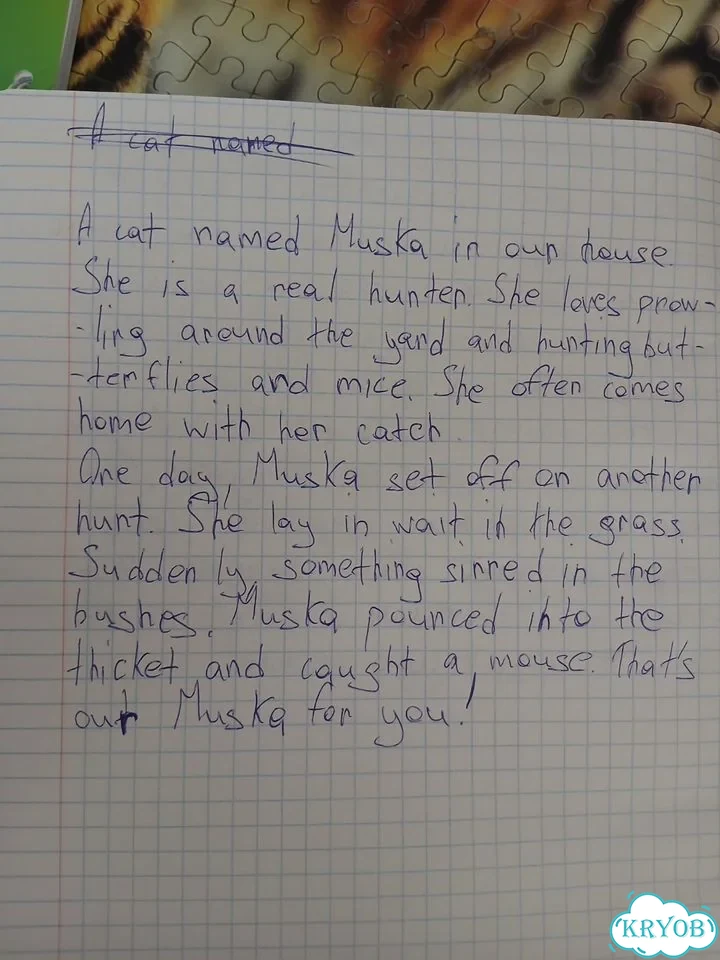 A cat named
A cat named Muska in our house.
She is a real hunter. She loves prow-
-ling around the yard and hunting but-
-terflies and mice. She often comes
home with her catch.
One day, Muska set off on another
hunt. She lay in wait in the grass.
Suddenly, something sirred in the
bushes. Muska pounced into the
thicket and caught a mouse. That's
our Muska for you!
KRYOB